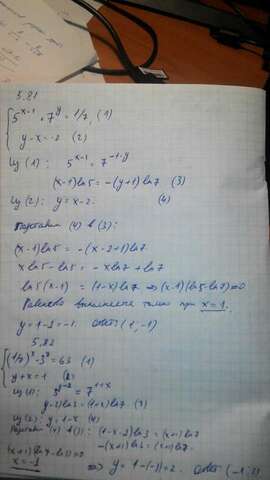 5.81
5^(x-1) · 7^y = 1/7, (1)
y-x=-2 (2)
Из (1): 5^(x-1) = 7^(-1-y)
(x-1)ln5 = -(y+1)ln7 (3)
Из (2): y=x-2. (4)
Подставим (4) в (3):
(x-1)ln5 = -(x-2+1)ln7
xln5-ln5 = -xln7+ln7
ln5(x-1) = (1-x)ln7 ⇒ (x-1)(ln5-ln7)=0
Равенство выполняется только при x=1.
y=1-2=-1. Ответ (1,-1)
5.82
(1/7)^x · 3^y = 63 (1)
y+x=1 (2)
Из (1): 3^(y-2) = 7^(1+x)
(y-2)ln3 = (1+x)ln7 (3)
Из (2): y=1-x (4)
Подставим (4) в (3): (1-x-2)ln3 = (x+1)ln7
-(x+1)ln3 = (x+1)ln7.
x=-1 ⇒ y=1-(-1)=2. Ответ (-1;2)